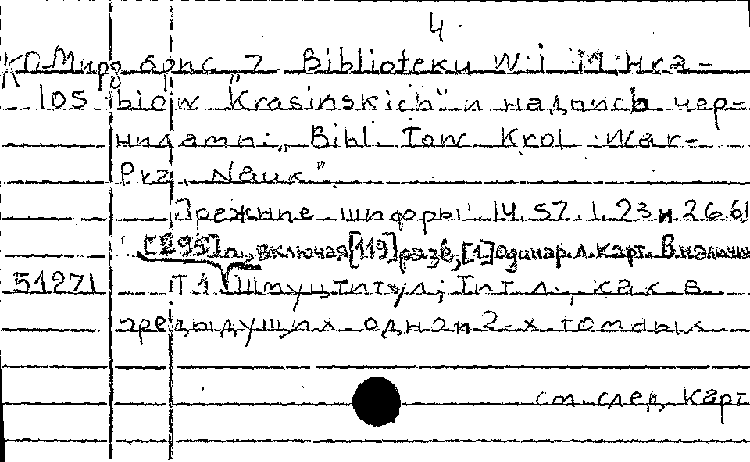 4.
КП-Мирз брпс 7 Biblioteki W. i M. Hra-
105 biow "Krasinskich" и надпись чер-
нилами: „Bibl. Tow. Krol. War-
Prz. Nauk".
Прежние шифры: 14.57.1.23 и 2661
[295] л., включая [119] разв., [1] одинар. л. карт. В наличии
51271 П 1 Шмуцтитул; Тит. л., как в
предыдущих одной 2-х томных
см. след. карт